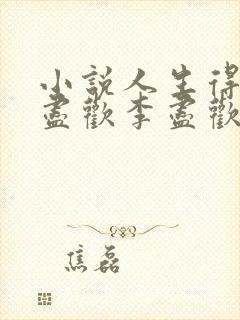 小說人生得
盡歡李盡歡
焦磊